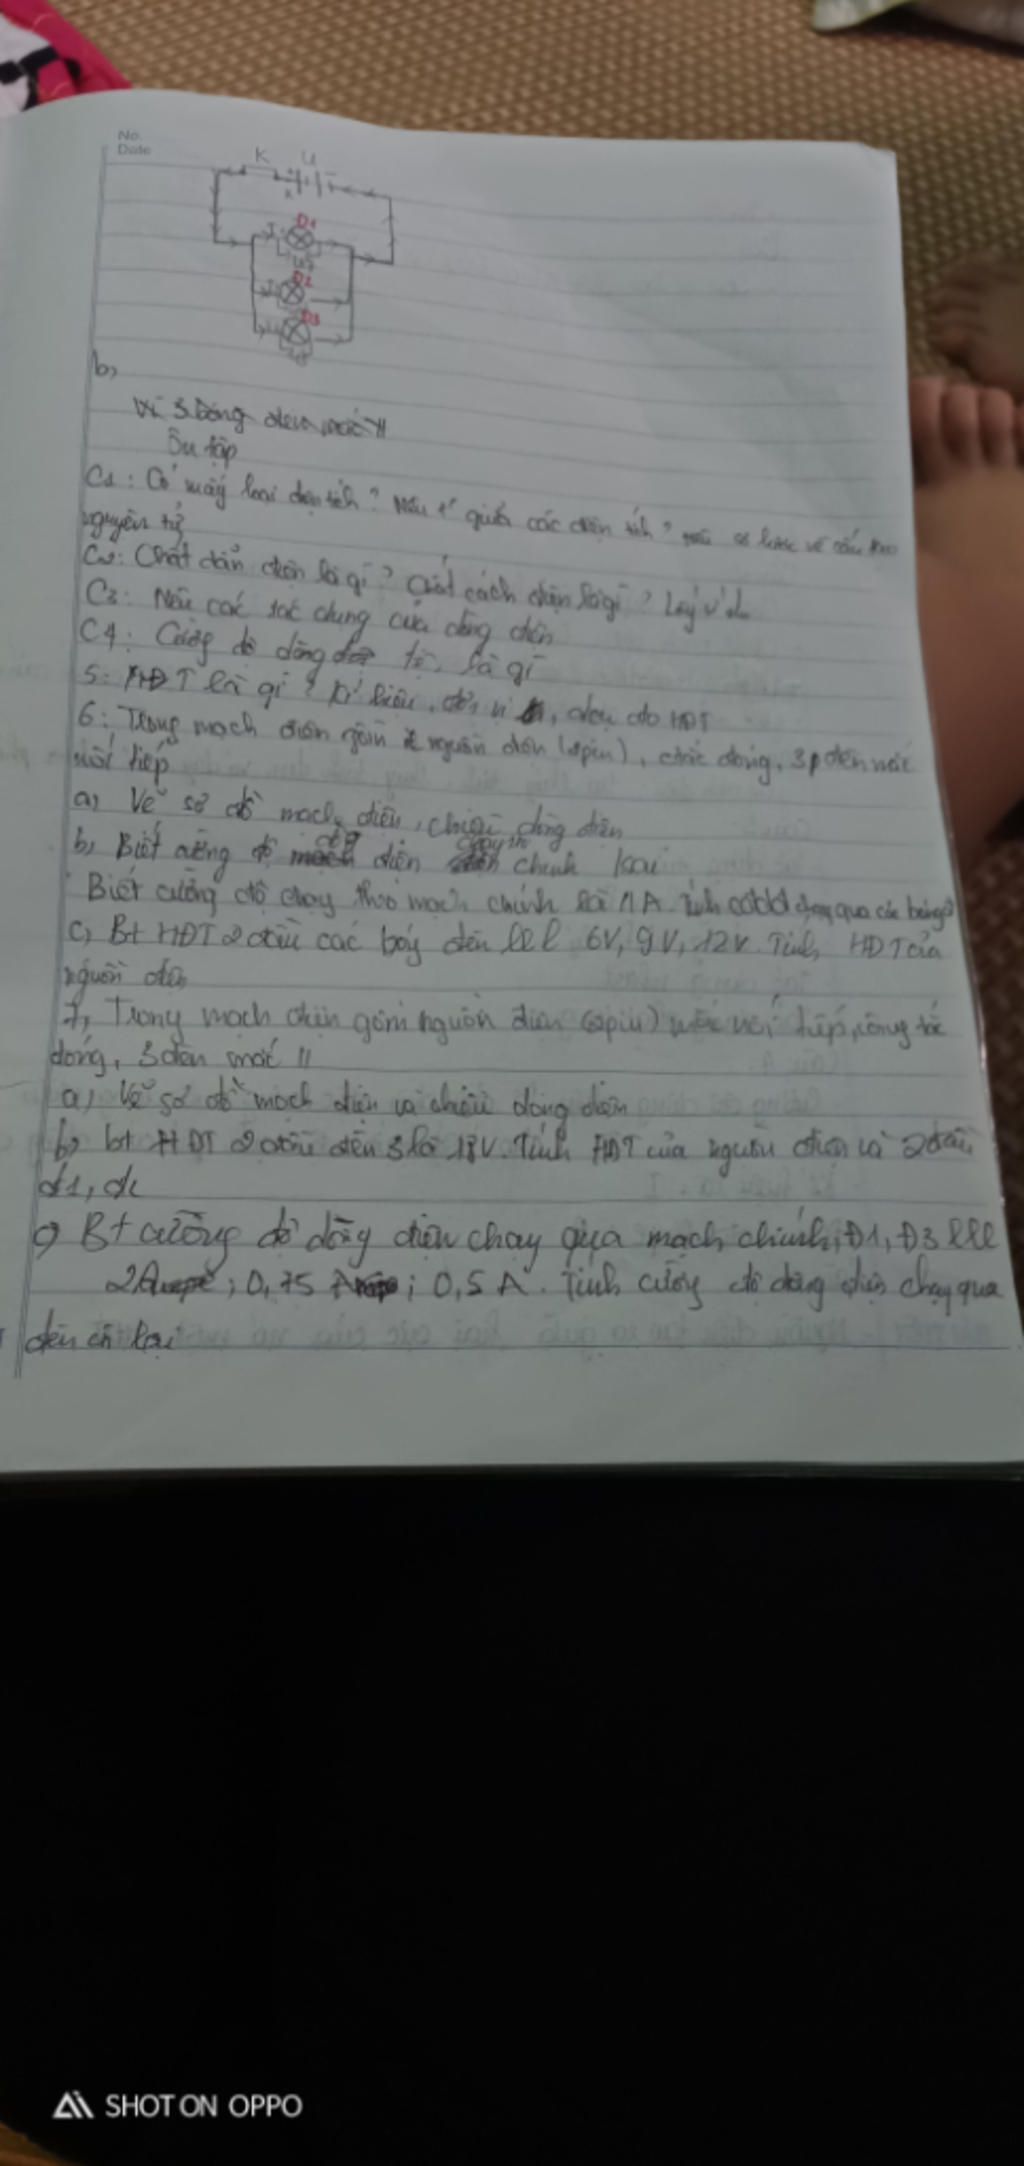 No.
Date
K U
Đ1
Đ2
Đ3
b,
Vì 3 bóng đèn mắc //
Ôn tập
C1: Có mấy loại điện tích? Nêu giữa các điện tích? về cấu tạo
nguyên tử
C2: Chất dẫn điện là gì? Chất cách điện là gì? Lấy ví dụ
C3: Nêu các tác dụng của dòng điện
C4: Cường độ dòng là gì
5: HĐT là gì? kí hiệu, đơn vị, đo HĐT
6: Trong mạch điện gồm nguồn điện (2pin), đóng, 3 đèn mắc
nối tiếp
a) Vẽ sơ đồ mạch điện, chiều dòng điện
b, Biết cường độ dòng điện chạy chính
Biết cường độ chạy mạch chính là 1A. Tính cđdđ chạy qua các bóng
c, Bt HĐT 2 đầu các bóng đèn lll 6V, 9V, 12V. Tính HĐT của
nguồn điện
7, Trong mạch điện gồm nguồn điện (2pin) mắc nối tiếp, công tắc
đóng, 3 đèn mắc //
a) Vẽ sơ đồ mạch điện và chiều dòng điện
b) bt HĐT 2 đầu đèn 3 là 18V. Tính HĐT của nguồn điện và 2 đầu
đ1, đ2
c) Bt cường độ dòng điện chạy qua mạch chính, Đ1, Đ3 lll
2A; 0,75 A; 0,5 A. Tính cường độ dòng điện chạy qua
đèn còn lại
SHOT ON OPPO